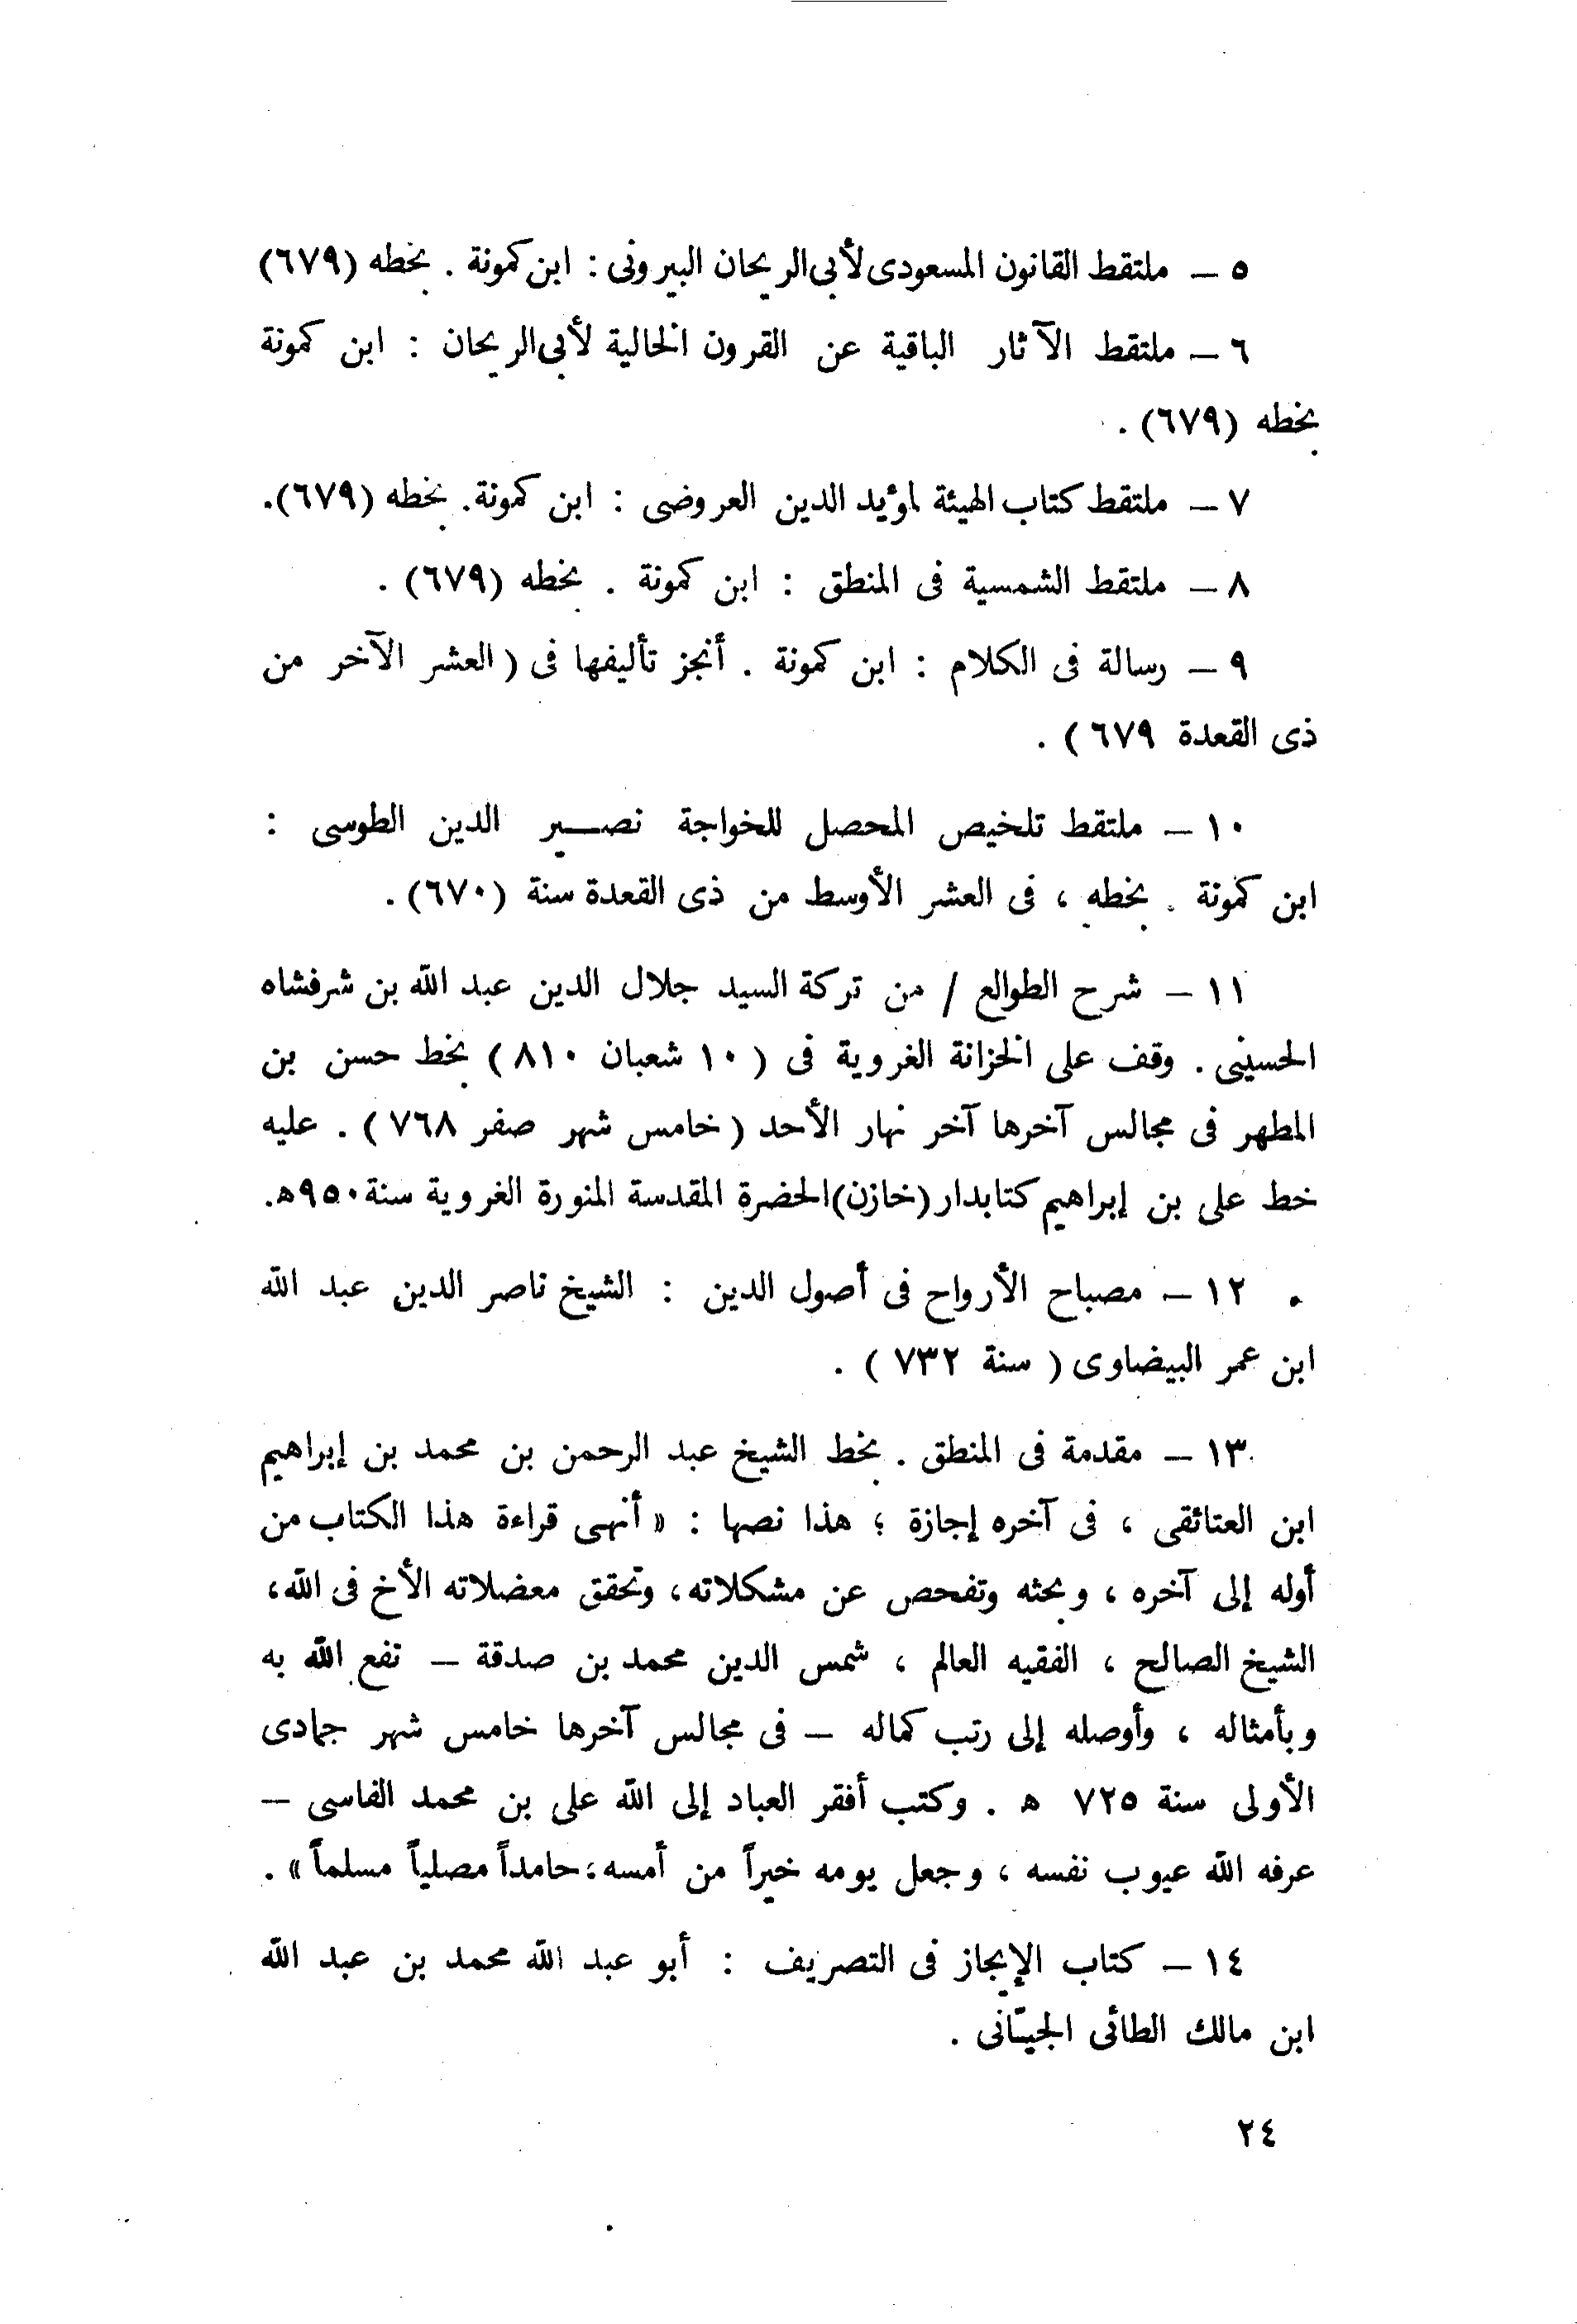 ٥ – ملتقط القانون المسعودى لأبى الريحان البيرونى : ابن كمونة . بخطه (٦٧٩)
٦ – ملتقط الآثار الباقية عن القرون الخالية لأبى الريحان : ابن كمونة
بخطه (٦٧٩) .
٧ – ملتقط كتاب الهيئة لمؤيد الدين العروضى : ابن كمونة. بخطه (٦٧٩).
٨ – ملتقط الشمسية فى المنطق : ابن كمونة . بخطه (٦٧٩) .
٩ – رسالة فى الكلام : ابن كمونة . أنجز تأليفها فى (العشر الآخر من
ذى القعدة ٦٧٩) .
١٠ – ملتقط تلخيص المحصل للخواجة نصــير الدين الطوسى :
ابن كمونة . بخطه ، فى العشر الأوسط من ذى القعدة سنة (٦٧٠) .
١١ – شرح الطوالع / من تركة السيد جلال الدين عبد الله بن شرفشاه
الحسينى . وقف على الخزانة الغروية فى (١٠ شعبان ٨١٠) بخط حسن بن
المطهر فى مجالس آخرها آخر نهار الأحد (خامس شهر صفر ٧٦٨) . عليه
خط على بن إبراهيم كتابدار (خازن) الحضرة المقدسة المنورة الغروية سنة ٩٥٠ه.
١٢ – مصباح الأرواح فى أصول الدين : الشيخ ناصر الدين عبد الله
ابن عمر البيضاوى (سنة ٧٣٢) .
١٣ – مقدمة فى المنطق . بخط الشيخ عبد الرحمن بن محمد بن إبراهيم
ابن العتائقى ، فى آخره إجازة ؛ هذا نصها : « أنهى قراءة هذا الكتاب من
أوله إلى آخره ، وبحثه وتفحص عن مشكلاته، وتحقق معضلاته الأخ فى الله،
الشيخ الصالح ، الفقيه العالم ، شمس الدين محمد بن صدقة – نفع الله به
وبأمثاله ، وأوصله إلى رتب كماله – فى مجالس آخرها خامس شهر جمادى
الأولى سنة ٧٢٥ ه . وكتب أفقر العباد إلى الله على بن محمد الفاسى –
عرفه الله عيوب نفسه ، وجعل يومه خيراً من أمسه ؛ حامداً مصلياً مسلماً » .
١٤ – كتاب الإيجاز فى التصريف : أبو عبد الله محمد بن عبد الله
ابن مالك الطائى الجيّانى .
٢٤